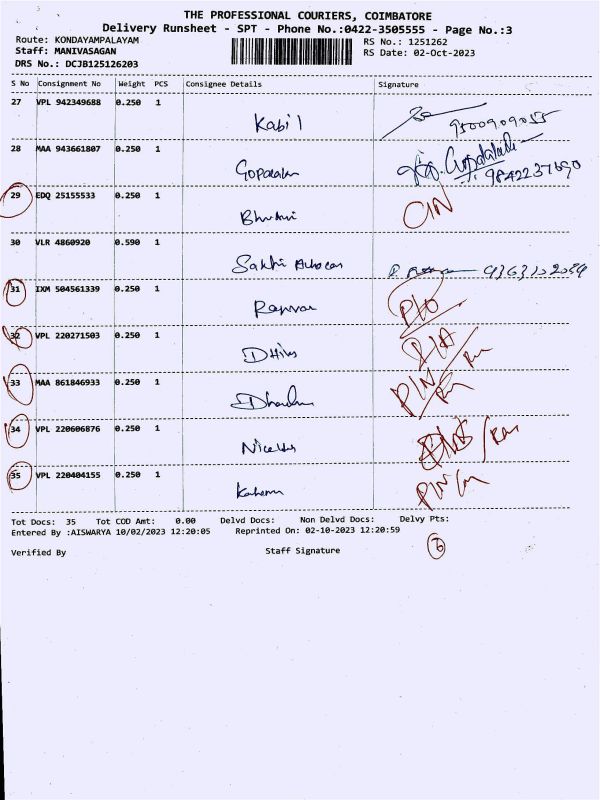 THE PROFESSIONAL COURIERS, COIMBATORE
Delivery Runsheet - SPT - Phone No.:0422-3505555 - Page No.:3
Route: KONDAYAMPALAYAM
RS No.: 1251262
Staff: MANIVASAGAN
RS Date: 02-Oct-2023
DRS No.: DCJB125126203
S No Consignment No Weight PCS Consignee Details Signature
27 VPL 942349688 0.250 1
Kabil 9500909055
28 MAA 943661807 0.250 1
Gopalalan 9842237690
29 EDQ 25155533 0.250 1
CIN
30 VLR 4860920 0.590 1
Sakhi
31 IXM 504561339 0.250 1
32 VPL 220271503 0.250 1
33 MAA 861846933 0.250 1
P/N
34 VPL 220606876 0.250 1
35 VPL 220404155 0.250 1
Tot Docs: 35 Tot COD Amt: 0.00 Delvd Docs: Non Delvd Docs: Delvy Pts:
Entered By :AISWARYA 10/02/2023 12:20:05 Reprinted On: 02-10-2023 12:20:59
Verified By Staff Signature